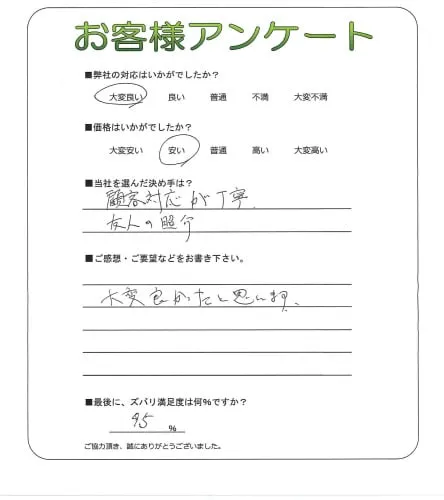 お客様アンケート
■弊社の対応はいかがでしたか？
大変良い 良い 普通 不満 大変不満
■価格はいかがでしたか？
大変安い 安い 普通 高い 大変高い
■当社を選んだ決め手は？
顧客対応が丁寧.
友人の照介
■ご感想・ご要望などをお書き下さい。
大変良かたと思います、
■最後に、ズバリ満足度は何%ですか？
95 %
ご協力頂き、誠にありがとうございました。